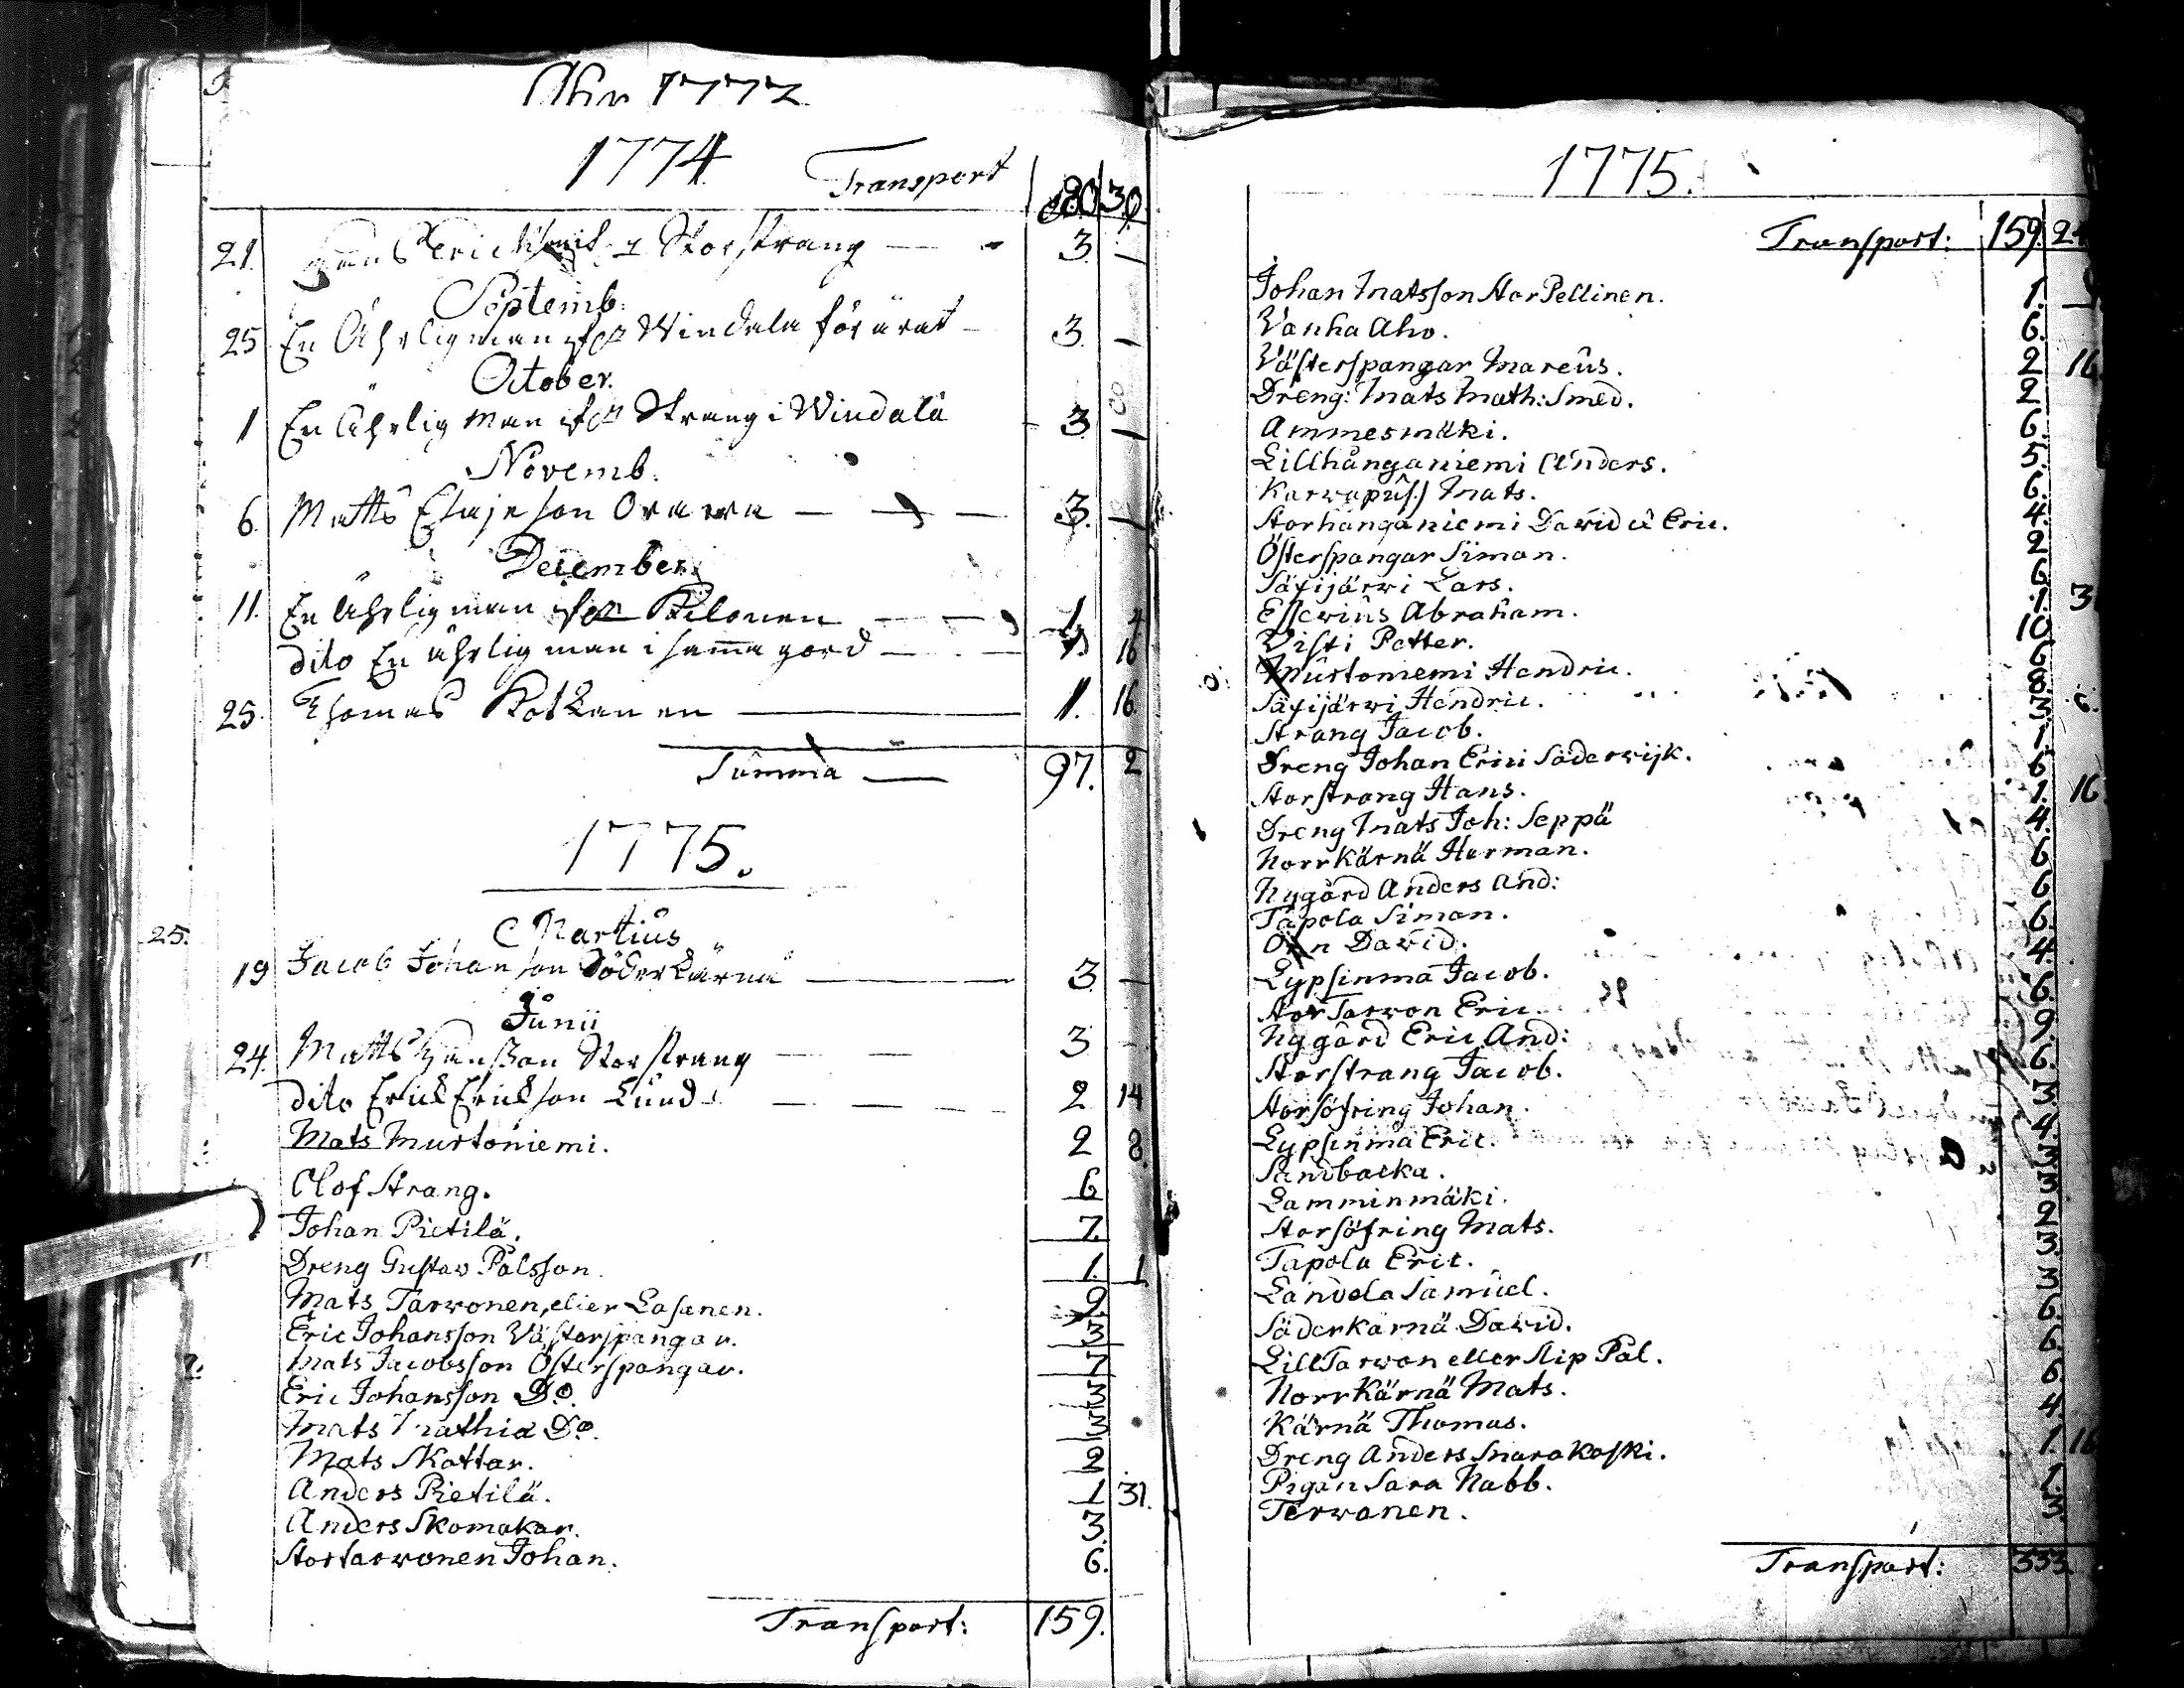 Åhr 1772
1774
Transport 80 30
21. Hans Storstrang 3. —
Septemb:
25 En Ährlig man Windala förärat 3. —
October.
1 En Ährlig Man Strang i Windala 3 —
Novemb.
6. Matts Esajeson Orawa 3. —
December.
11. En Ährlig man Kilonen 1 4
dito En ährlig man i samma gord 16
25. Thomas Kotkanen 1. 16.
Summa 97. 2
1775.
25.
Martius
19 Jacob Johanson Söderkärnä 3. —
Junii
24. Matts Hansson Storstrang 3
dito Erick Erickson Lund 2 14
Mats Murtoniemi. 2 8.
Olof Strang. 6
Johan Pietilä. 7.
Dreng Gustaw Pålsson. 1. 1
Mats Tarwonen, eller Lasanen. 2.
Eric Johansson Västerspangar. 3
Mats Jacobsson Österspangar. 7
Eric Johansson Do. 3
Mats Mathiæ Do. 3
Mats Skattar. 2
Anders Pietilä. 1 31.
Anders Skomakar. 3.
Stortarwonen Johan. 6.
Transport: 159.
1775.
Transport: 159.
Johan Matsson Stor Pellinen. 1.
Vanha Aho. 6.
Västerspangar Marcus. 2 16
Dreng: Mats Math: Smed. 2
Ammesmäki. 6.
Lillhånganiemi Anders. 5.
Mats. 6.
Storhånganiemi David & Eric. 4.
Österspangar Simon. 2
Säxijärwi Lars. 6
Esserius Abraham. 1. 3
Visti Petter. 10
Murtoniemi Hendric. 6
Säxijärwi Hendric. 8. 6.
Strang Jacob. 3
Dreng Johan Erici Söderwijk. 1
Storstrang Hans. 6
Dreng Mats Joh: Seppä 1. 16.
Norrkärnä Herman. 4.
Nygård Anders And: 6
Tåpola Simon. 6
Örn David. 6.
Lypsinma Jacob. 4.
Stor Tarwon Eric. 6.
Nygård Eric And: 9.
Storstrang Jacob. 6.
Storsöfring Johan. 3.
Lypsinma Eric. 4.
Sandbacka. 3
Lamminmäki. 3
Storsöfring Mats. 2
Tapola Eric. 3.
Landela Samuel. 3
Söderkärnä David. 6.
Lill Tarwon eller Slip Pål. 6.
Norrkärnä Mats. 6.
Kärnä Thomas. 4.
Dreng Anders Snarakoski. 1. 16
Pigan Sara Nabb. 1.
Terwonen. 3.
Transport: 333.